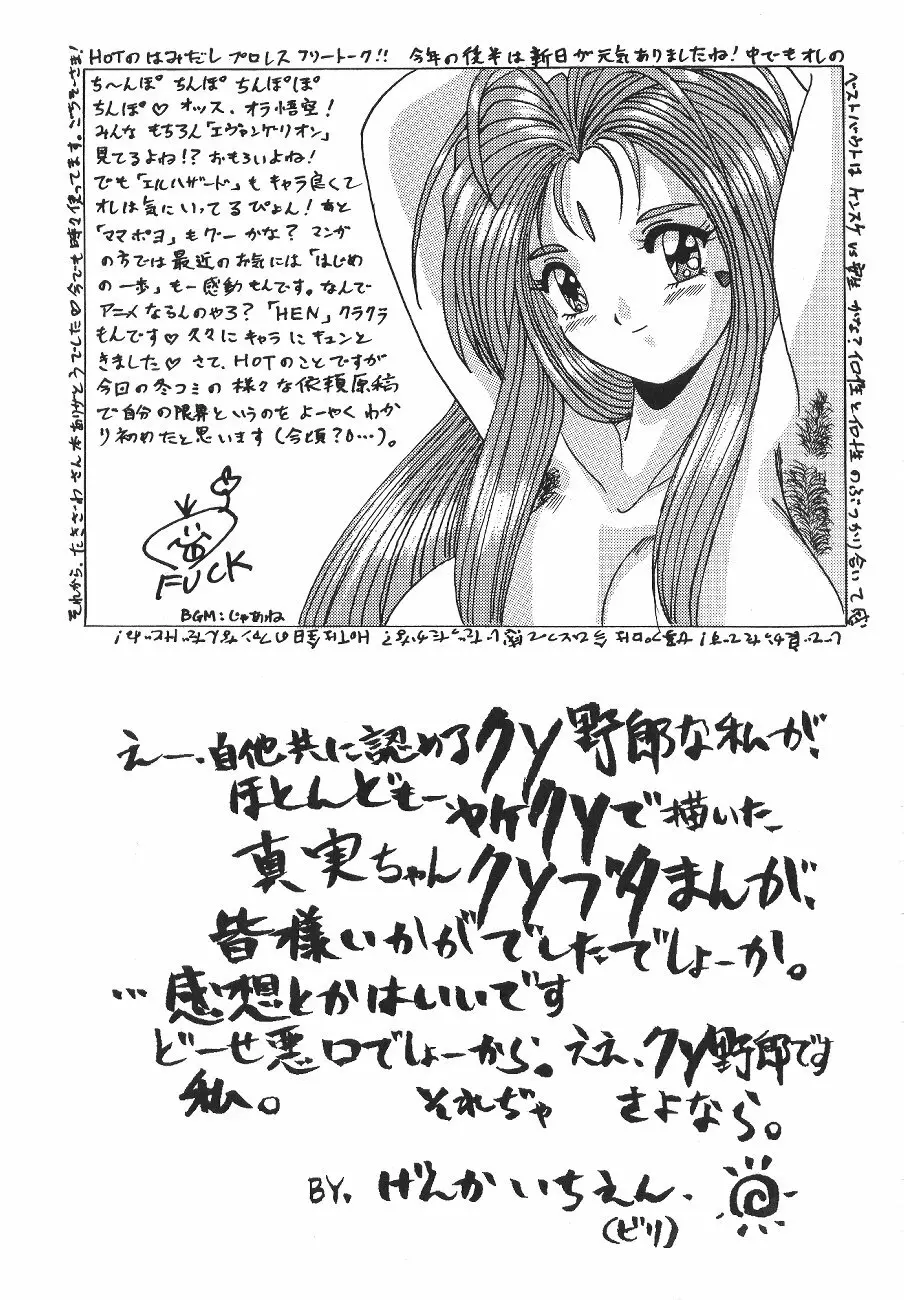 HOTのはみだし プロレス フリートーク!! 今年の後半は新日が元気ありましたね! 中でもオレの
ベストバウトは トンスケ vs かな? 個性と個性のぶつかり合いて
HOTは全日のファンなんだけど!
それから、たきざわさん本ありがとうでした♡今でも時々使ってます。ごちそーさま!
ち〜んぽ ちんぽ ちんぽぽ
ちんぽ♡ オッス、オラ悟空!
みんな もちろん「エヴァンゲリオン」
見てるよね!? おもろいよね!
でも「エルハザード」も キャラ良くて
オレは気にいってるぴょん! あと
「ママポヨ」も グーかな? マンガ
の方では最近のお気には「はじめ
の一歩」も一感動もんです。なんで
アニメなるんのやろ?「HEN」クラクラ
もんです♡ 久々にキャラにキュンと
きました♡ さて、HOTのことですが
今回の冬コミの様々な依頼原稿
で自分の限界というのを よーやくわか
り初めたと思います(今頃?0…)。
FUCK
BGM:じゃあね
えー、自他共に認めるクソ野郎な私が、
ほとんどもーヤケクソで描いた、
真実ちゃんクソブタまんが、
皆様いかがでしたでしょーか。
…感想とかはいいです
どーせ悪口でしょーから。ええ、クソ野郎です
私。 それぢゃ さよなら。
BY. げんかいちえん.
(ビリ)